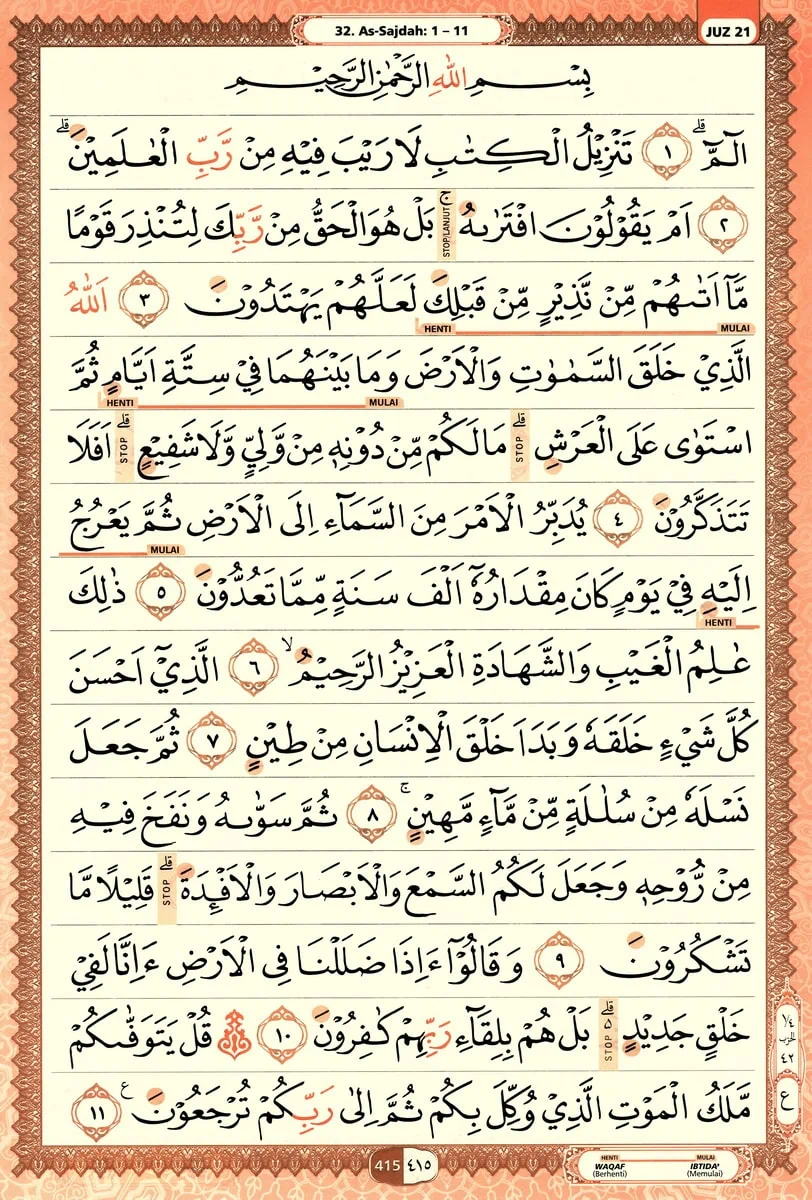 32. As-Sajdah: 1 – 11
JUZ 21
بِسْمِ اللّٰهِ الرَّحْمٰنِ الرَّحِيْمِ
الۤمّۤ ۗ ١ تَنْزِيْلُ الْكِتٰبِ لَا رَيْبَ فِيْهِ مِنْ رَّبِّ الْعٰلَمِيْنَ ۗ
٢ اَمْ يَقُوْلُوْنَ افْتَرٰىهُ ۚ STOP/LANJUT بَلْ هُوَ الْحَقُّ مِنْ رَّبِّكَ لِتُنْذِرَ قَوْمًا
مَّآ اَتٰىهُمْ مِّنْ نَّذِيْرٍ مِّنْ قَبْلِكَ لَعَلَّهُمْ يَهْتَدُوْنَ ٣ اَللّٰهُ
MULAI HENTI
الَّذِيْ خَلَقَ السَّمٰوٰتِ وَالْاَرْضَ وَمَا بَيْنَهُمَا فِيْ سِتَّةِ اَيَّامٍ ثُمَّ
MULAI HENTI
اسْتَوٰى عَلَى الْعَرْشِ ۗ STOP مَا لَكُمْ مِّنْ دُوْنِهٖ مِنْ وَّلِيٍّ وَّلَا شَفِيْعٍ ۗ STOP اَفَلَا
تَتَذَكَّرُوْنَ ٤ يُدَبِّرُ الْاَمْرَ مِنَ السَّمَاۤءِ اِلَى الْاَرْضِ ثُمَّ يَعْرُجُ
MULAI
اِلَيْهِ فِيْ يَوْمٍ كَانَ مِقْدَارُهٗٓ اَلْفَ سَنَةٍ مِّمَّا تَعُدُّوْنَ ٥ ذٰلِكَ
HENTI
عٰلِمُ الْغَيْبِ وَالشَّهَادَةِ الْعَزِيْزُ الرَّحِيْمُ ۙ ٦ الَّذِيْٓ اَحْسَنَ
كُلَّ شَيْءٍ خَلَقَهٗ وَبَدَاَ خَلْقَ الْاِنْسَانِ مِنْ طِيْنٍ ٧ ثُمَّ جَعَلَ
نَسْلَهٗ مِنْ سُلٰلَةٍ مِّنْ مَّاۤءٍ مَّهِيْنٍ ۚ ٨ ثُمَّ سَوّٰىهُ وَنَفَخَ فِيْهِ
مِنْ رُّوْحِهٖ وَجَعَلَ لَكُمُ السَّمْعَ وَالْاَبْصَارَ وَالْاَفْـِٕدَةَ ۗ STOP قَلِيْلًا مَّا
تَشْكُرُوْنَ ٩ وَقَالُوْٓا ءَاِذَا ضَلَلْنَا فِى الْاَرْضِ ءَاِنَّا لَفِيْ
خَلْقٍ جَدِيْدٍ ەۗ STOP بَلْ هُمْ بِلِقَاۤءِ رَبِّهِمْ كٰفِرُوْنَ ١٠ قُلْ يَتَوَفّٰىكُمْ
مَّلَكُ الْمَوْتِ الَّذِيْ وُكِّلَ بِكُمْ ثُمَّ اِلٰى رَبِّكُمْ تُرْجَعُوْنَ ࣖ ١١
١/٤
الحزب
٤٢
ع
415 ٤١٥
HENTI MULAI
WAQAF IBTIDA'
(Berhenti) (Memulai)